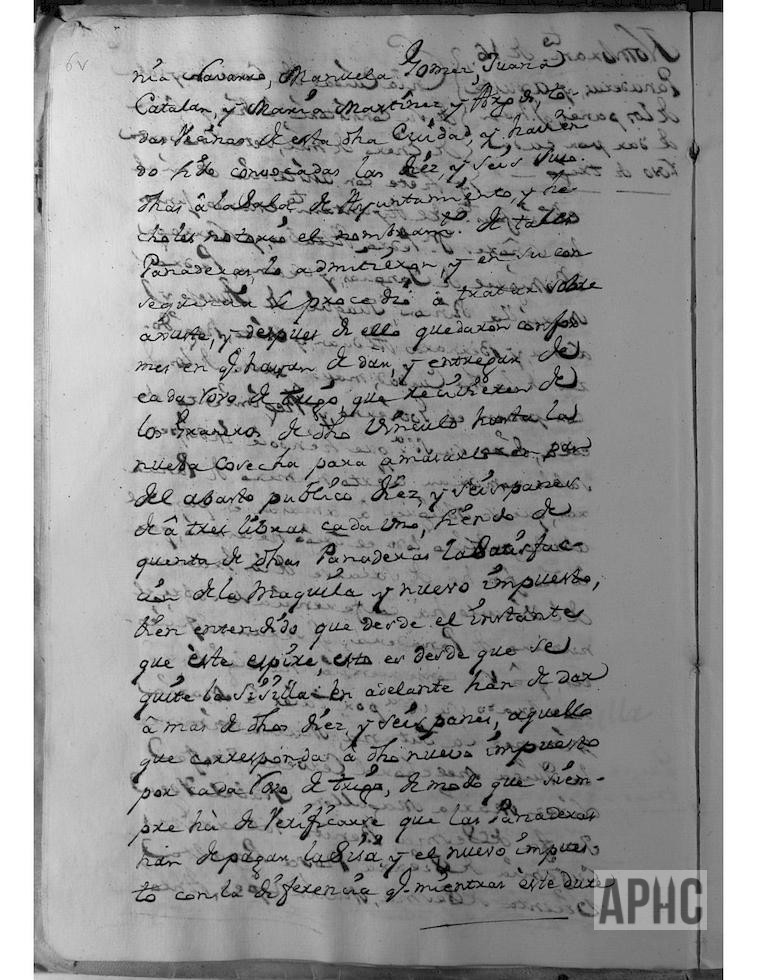 6v
nia Navarro, Manuela Gomez, Juana
Catalan, y Maria Martinez y to-
das Vecinas de esta dha Ciudad, y havien
do sido convocadas las diez, y seis
dhas â la Sala de Ayuntamiento, y he
choles notorio el nombramto. de tales
Panaderas, lo admitieron, y en su con
sequencia se procedió â tratar sobre
ajuste, y despues de ello quedaron confor
mes en q. hayan de dar, y entregar de
cada Rovo de trigo que recivieren de
los Graneros de dho Vinculo hasta la
nueva cosecha para amasarlo
del abasto publico diez, y seis panes
de â tres libras cada uno, siendo de
quenta de dhas Panaderas la Satisfac-
ción de la Maquila y nuevo impuesto,
bien entendido que desde el instante
que este espire, esto es desde que se
quite la Sisilla en adelante hân de dar
â mas de dhos diez, y seis panes, aquello
que corresponda â dho nuevo impuesto
por cada Rovo de trigo, de modo que siem-
pre hà de Verificarse que las Panaderas
hân de pagar la Sisa y el nuevo impues
to con la diferencia q. mientras este dure
APHC